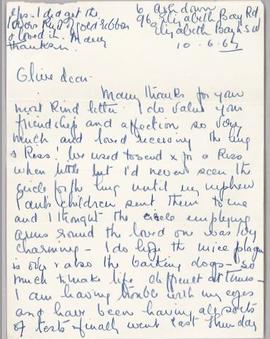 Ps. I did get the
6 Ashdown
96 Elizabeth Bay Rd
Elizabeth Bay NSW
10-6-67
Olive dear
Many thanks for your
most kind letter I do value your
friendship and affection so very
much and loved receiving the hug
& kiss. We used to send x for a kiss
when little but I'd never seen the
circle for the hug until my nephew
Paul's children sent them to me
and I thought the circle implying
arms round the loved one was very
charming - I do hope the mice plague
is over & also the barking dogs - so
much to make life difficult at times -
I am having trouble with my eyes
and have been having all sorts
of tests & finally went last Thursday